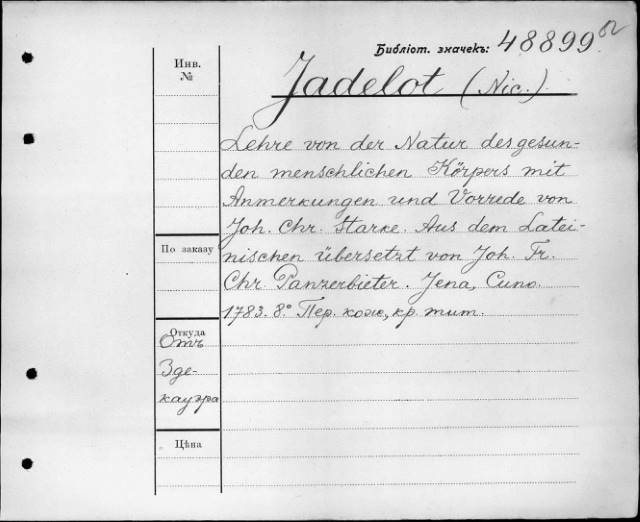 Библіот. значекъ: 48899 82
Инв.
№
Jadelot (Nic.)
Lehre von der Natur des gesun-
den menschlichen Körpers mit
Anmerkungen und Vorrede von
Joh. Chr. Starke. Aus dem Latei-
nischen übersetzt von Joh. Fr.
Chr. Panzerbieter. Jena, Cuno.
1783. 8.° Пер. кож, кр. тит.
По заказу
Откуда
Отъ
Зде-
кауэра
Цѣна